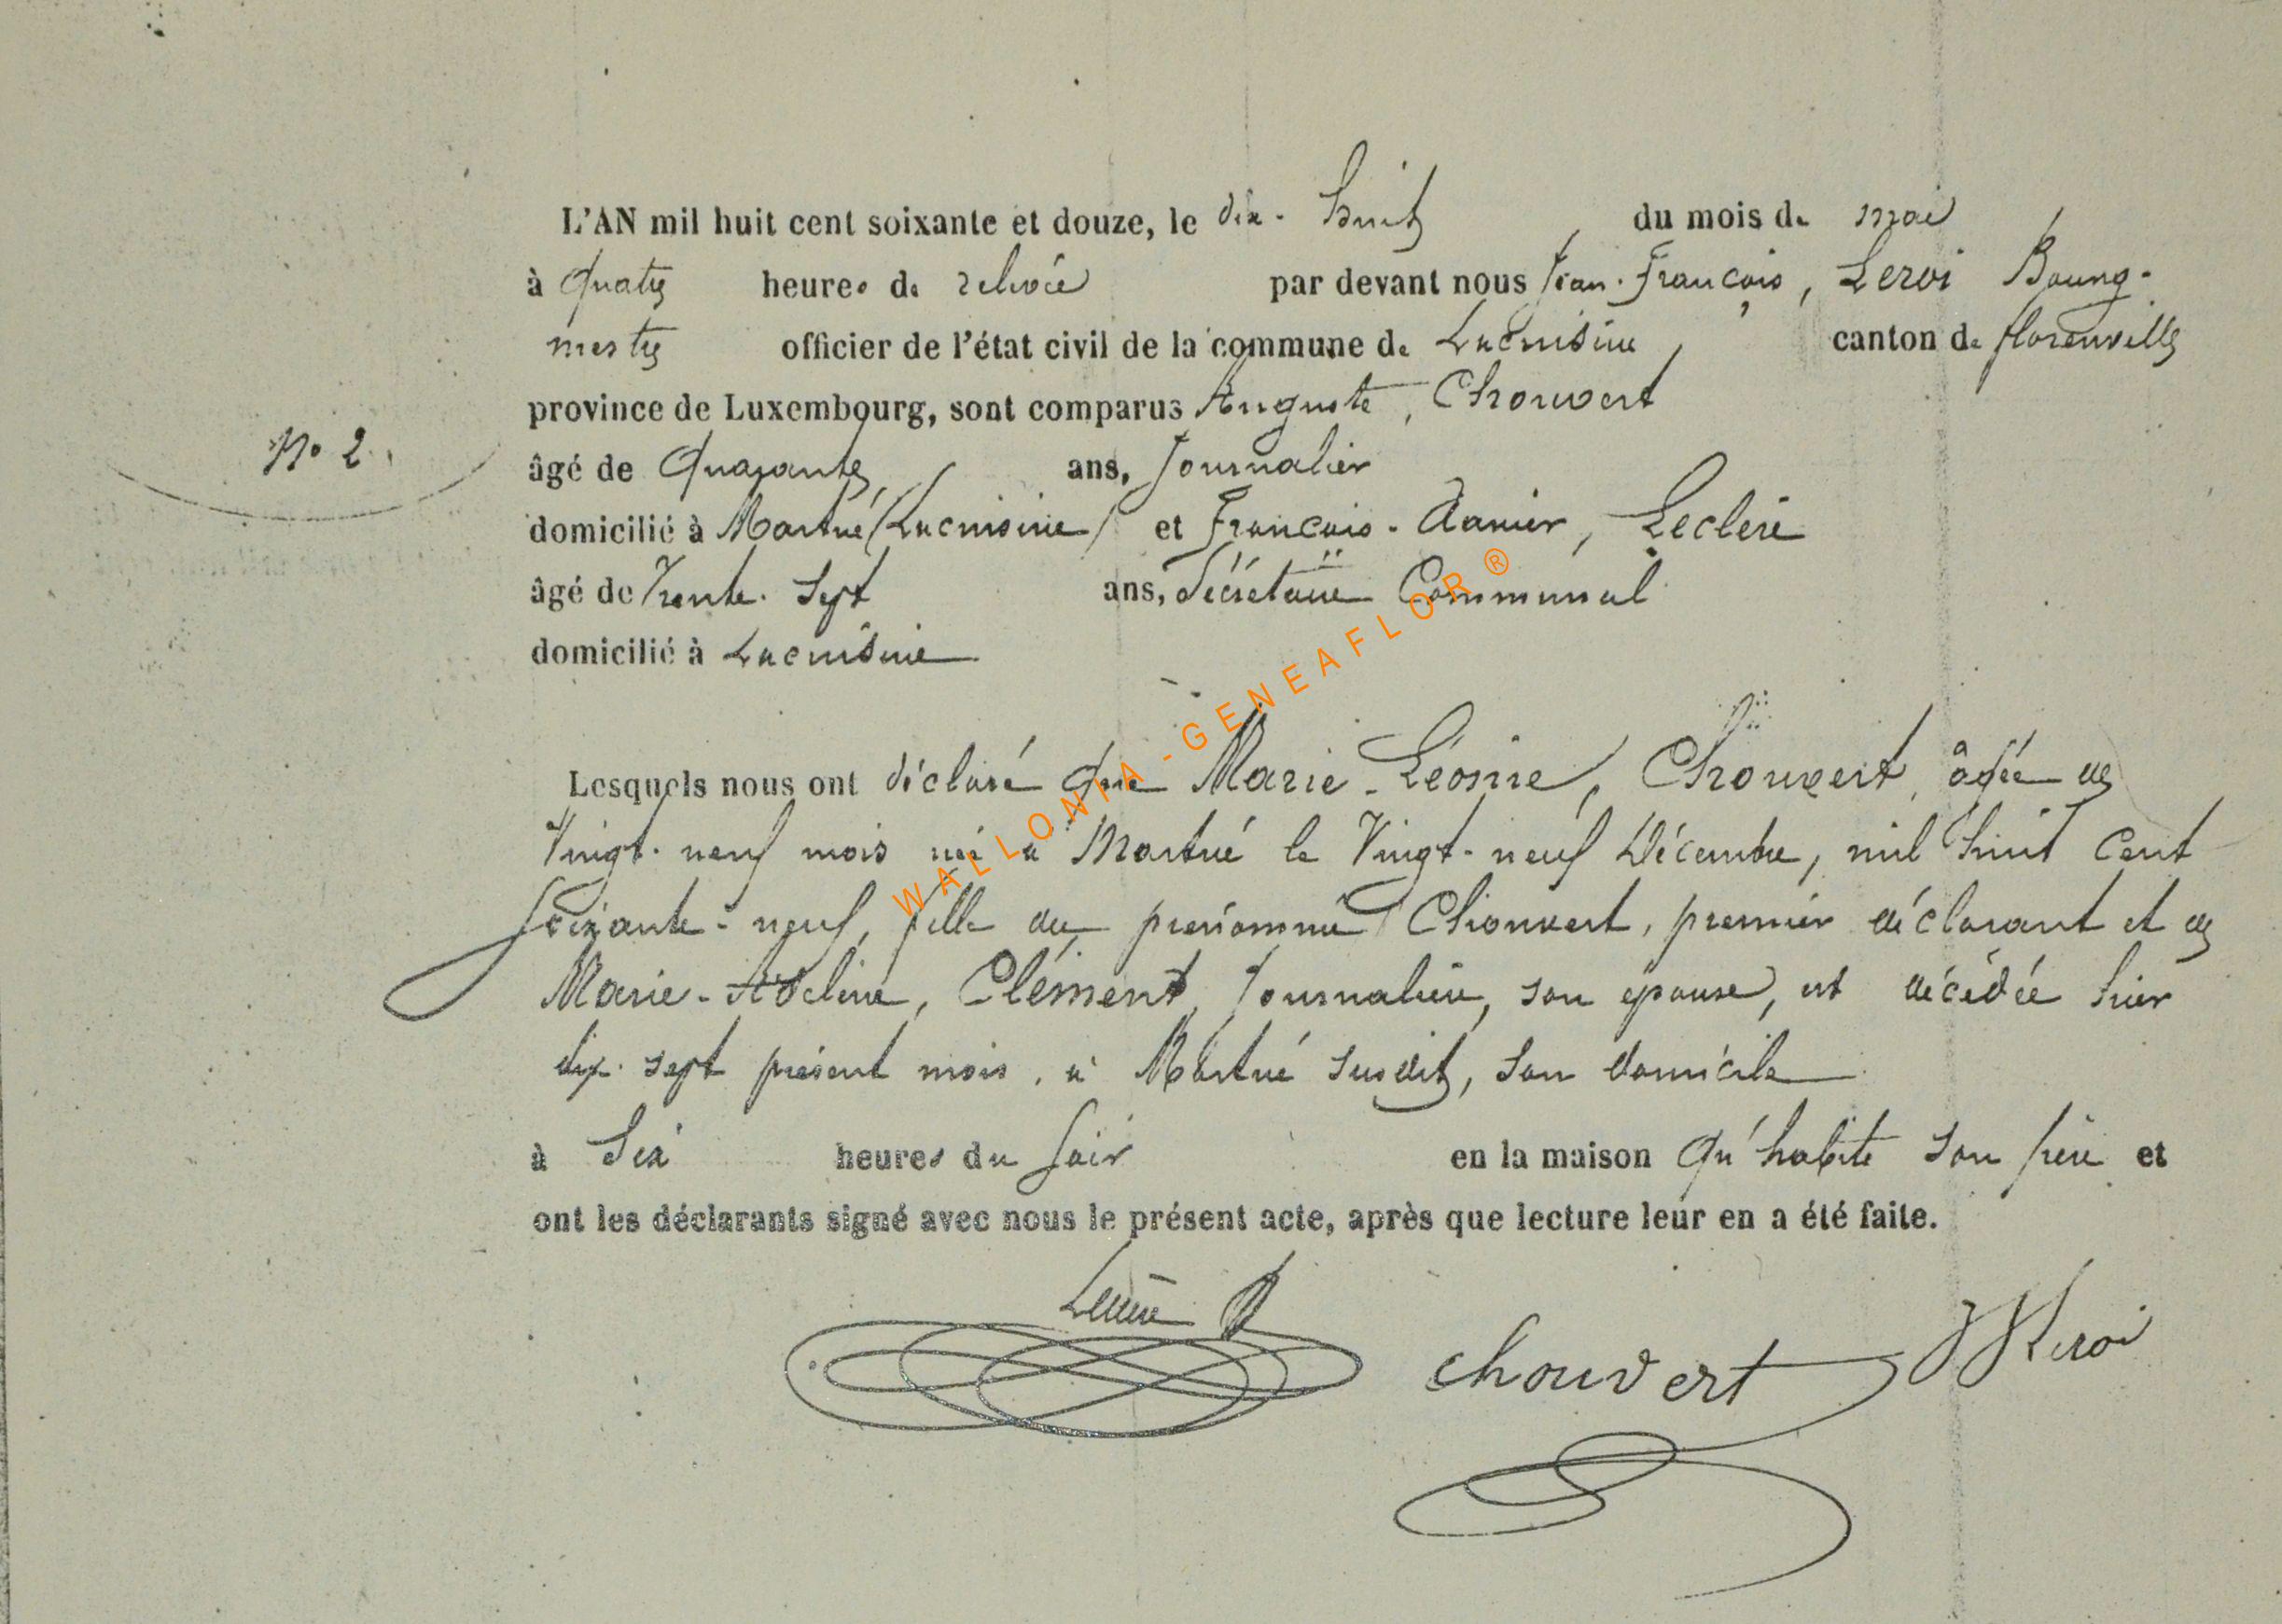 L'AN mil huit cent soixante et douze, le dix-huit, du mois de mai
à quatre heures de relevée par devant nous Jean-François, Leroi Bourg-
mestre officier de l'état civil de la commune de Lacuisine, canton de florenville
province de Luxembourg, sont comparus Auguste, Chouvert
N° 2.
âgé de quarante ans, Journalier
domicilié à Martué (Lacuisine) et François-Xavier, Leclère
âgé de Trente-Sept ans, Sécrétaire Communal
domicilié à Lacuisine
Lesquels nous ont déclaré que Marie-Léonie, Chouvert, âgée de
Vingt-neuf mois née à Martué le Vingt-neuf Décembre, mil huit Cent
Soixante-neuf, fille du prénommé Chouvert, premier déclarant et de
Marie-Adeline, Clément, Journalière, son épouse, est décédée hier
dix-sept présent mois, à Martué susdit, son domicile
à Six heures du soir en la maison qu'habite son père et
ont les déclarants signé avec nous le présent acte, après que lecture leur en a été faite.
Leclère
chouvert
Leroi
WALLONIA-GENEAFLOR®